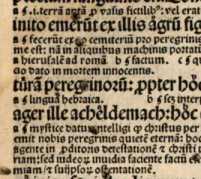 s. i. terrā agrū p vasis fictilib⁹: vel erat
inito emerūt ex illis agrū fi
s fecerūt ex eo cemiteriū pro peregrino
me est: nā in aliquibus machinis portata
hierusalē ad romā b s factum. c s qui
cio dato in mortem innocentis.
turā peregrinorū: ꝓpter hoc
s linguā hebraica. b s sez interp
ager ille acheldemach: hoc
n s mystice datur intelligi ꝙ christus per
emit nobis peregrinis quietē eternā: hoc
agente in ꝓditoris detestationē & christi
riam: sed iudeoꝝ inuidia faciente facti
miam & suiipsoꝝ ostentationē.